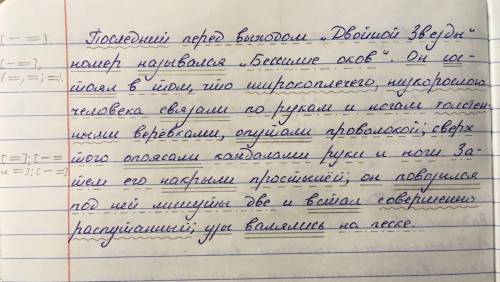 [– =].
Последний перед выходом „Двойной Звезды"
[– =],
номер назывался „Бессилие оков". Он сос-
(=, =; =).
тоял в том, что широкоплечего, низкорослого
человека связали по рукам и ногам толстен-
ными верёвками, опутали проволокой; сверх
[=]; [– =
того опоясали кандалами руки и ноги. За-
и =]; [– =]
тем его накрыли простынёй; он повозился
под ней минуты две и встал совершенно
распутанный; узы валялись на песке.